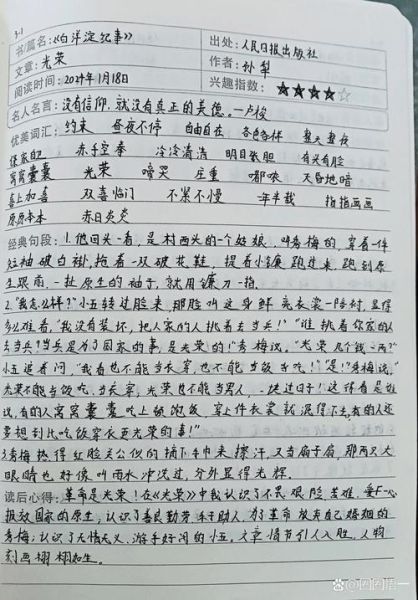 3-1
书/篇名:《白洋淀纪事》 出处:人民日报出版社
文章:光荣 作者:孙犁
阅读时间:2024年1月18日 兴趣指数:★★★★☆
名人名言:没有信仰,就没有真正的美德。—卢梭
优美词汇:约束 昼夜不停 自由自在 各色各样 整天整夜
保家 赤手空拳 冷冷清清 明目张胆 有头有脸
窝窝囊囊 光荣 啼哭 庄重 嘟哝 天昏地暗
喜上加喜 双喜临门 不紧不慢 一年半载 指指画画
原原本本 赤日炎炎
经典句段:1.他回头一看,是村西头的一个姑娘,叫秀梅的,穿着一件
短袖破白褂,拖着一双破花鞋,提着小镰跑过来,跑到原
生跟前,一扯原生的袖子,就用镰刀一指。
2."我怎么样?"小五转过脸来,那脸叫这身鲜亮衣裳一陪衬,显得
多么难看,"我没有装坏,把人家的人挑着去当兵!""谁挑着你家的人
去当兵?当兵是为了国家的事,是光荣的!"秀梅说。"光荣几个钱一两?"
小五追着问,"我看也不能当衣穿,也不能当饭吃!""是!"秀梅说,"
光荣不能当饭吃、当衣穿,光荣也不能当男人,一块过日子!这得看是谁
说,有的人窝窝囊囊吃上顿饱饭,穿上件衣裳就混得下去,有的人还
要想到比吃饭穿衣更光荣的事!"
3.秀梅热得红脸关公似的摘下手巾来擦汗,又当扇子扇,那两只大
眼睛也好像叫雨水冲洗过,分外显得光辉。
读后心得:革命是光荣!在《光荣》中我认识了不畏艰险苦难,一心
报效国家的原生;认识了善良勤劳、乐于助人,为了革命放弃自己婚姻的
秀梅;认识了无情无义、游手好闲的小五。文章情节引人入胜,人物
刻画栩栩如生。